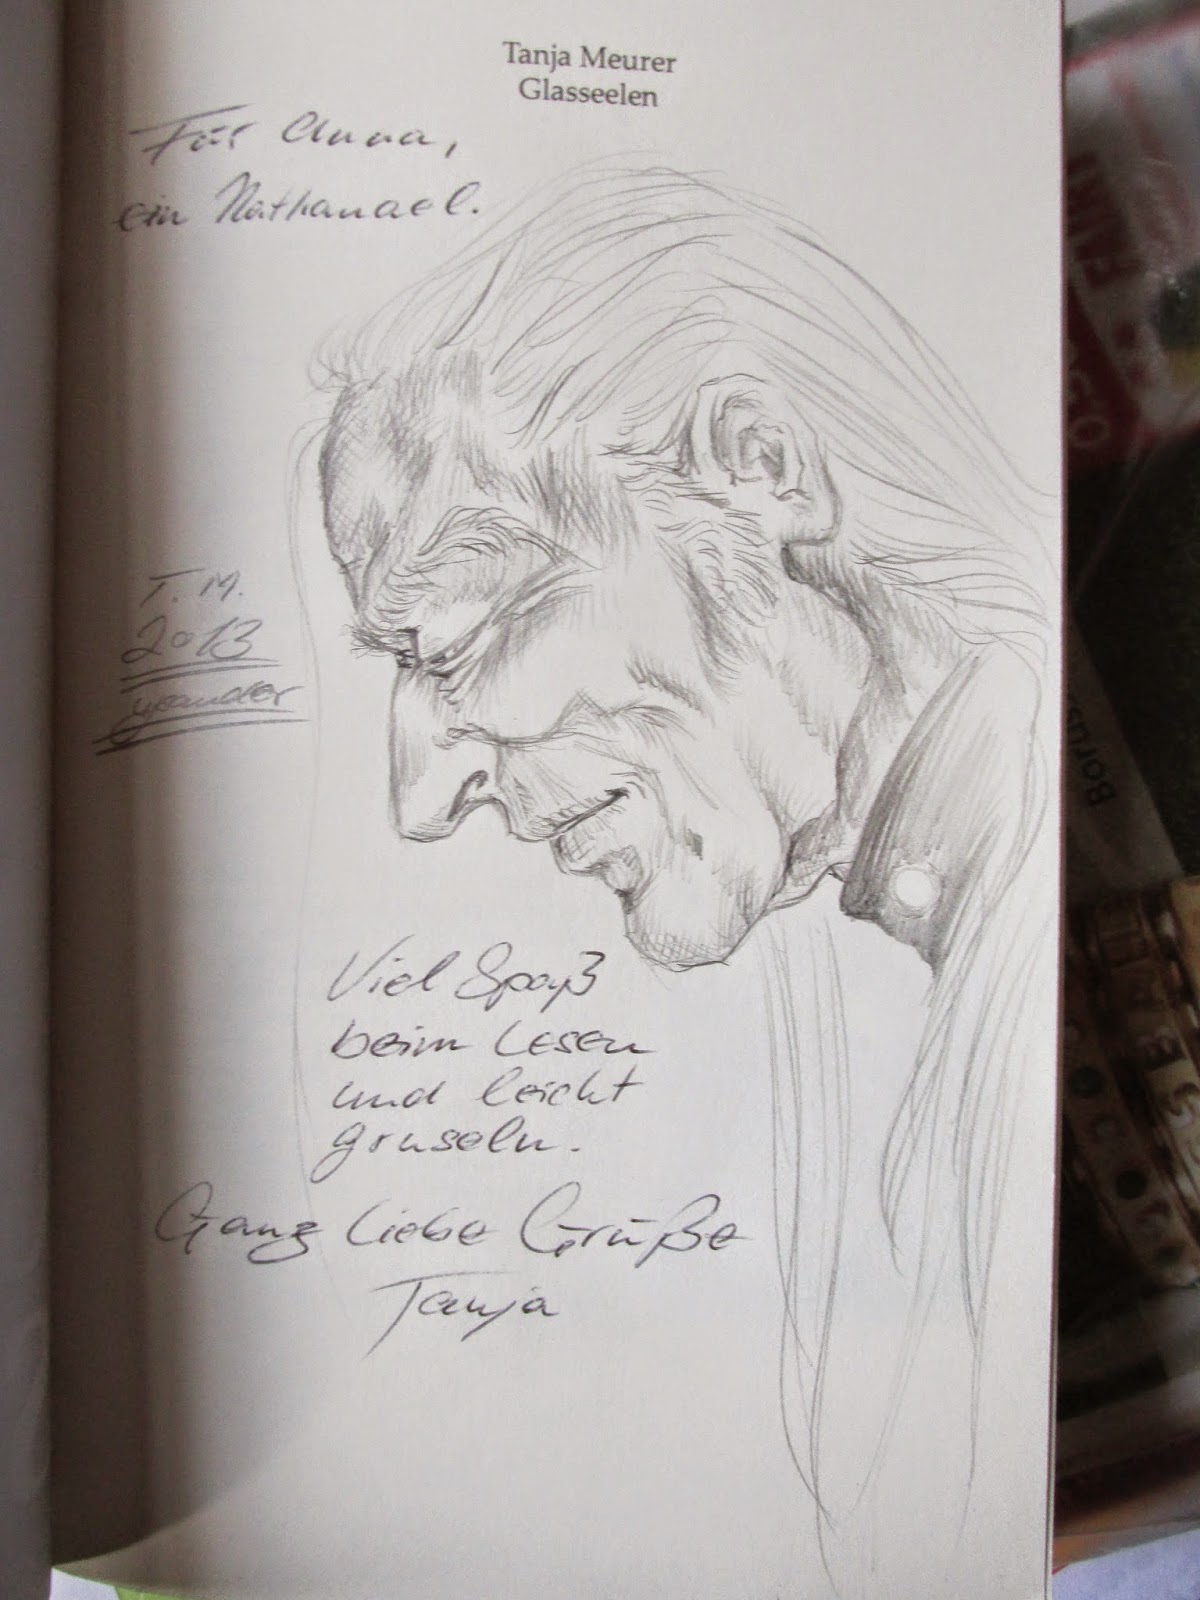 Tanja Meurer
Glasseelen
Für Anna,
ein Nathanael.
T. M.
2013
Viel Spaß
beim Lesen
und leicht
gruseln.
Ganz liebe Grüße
Tanja